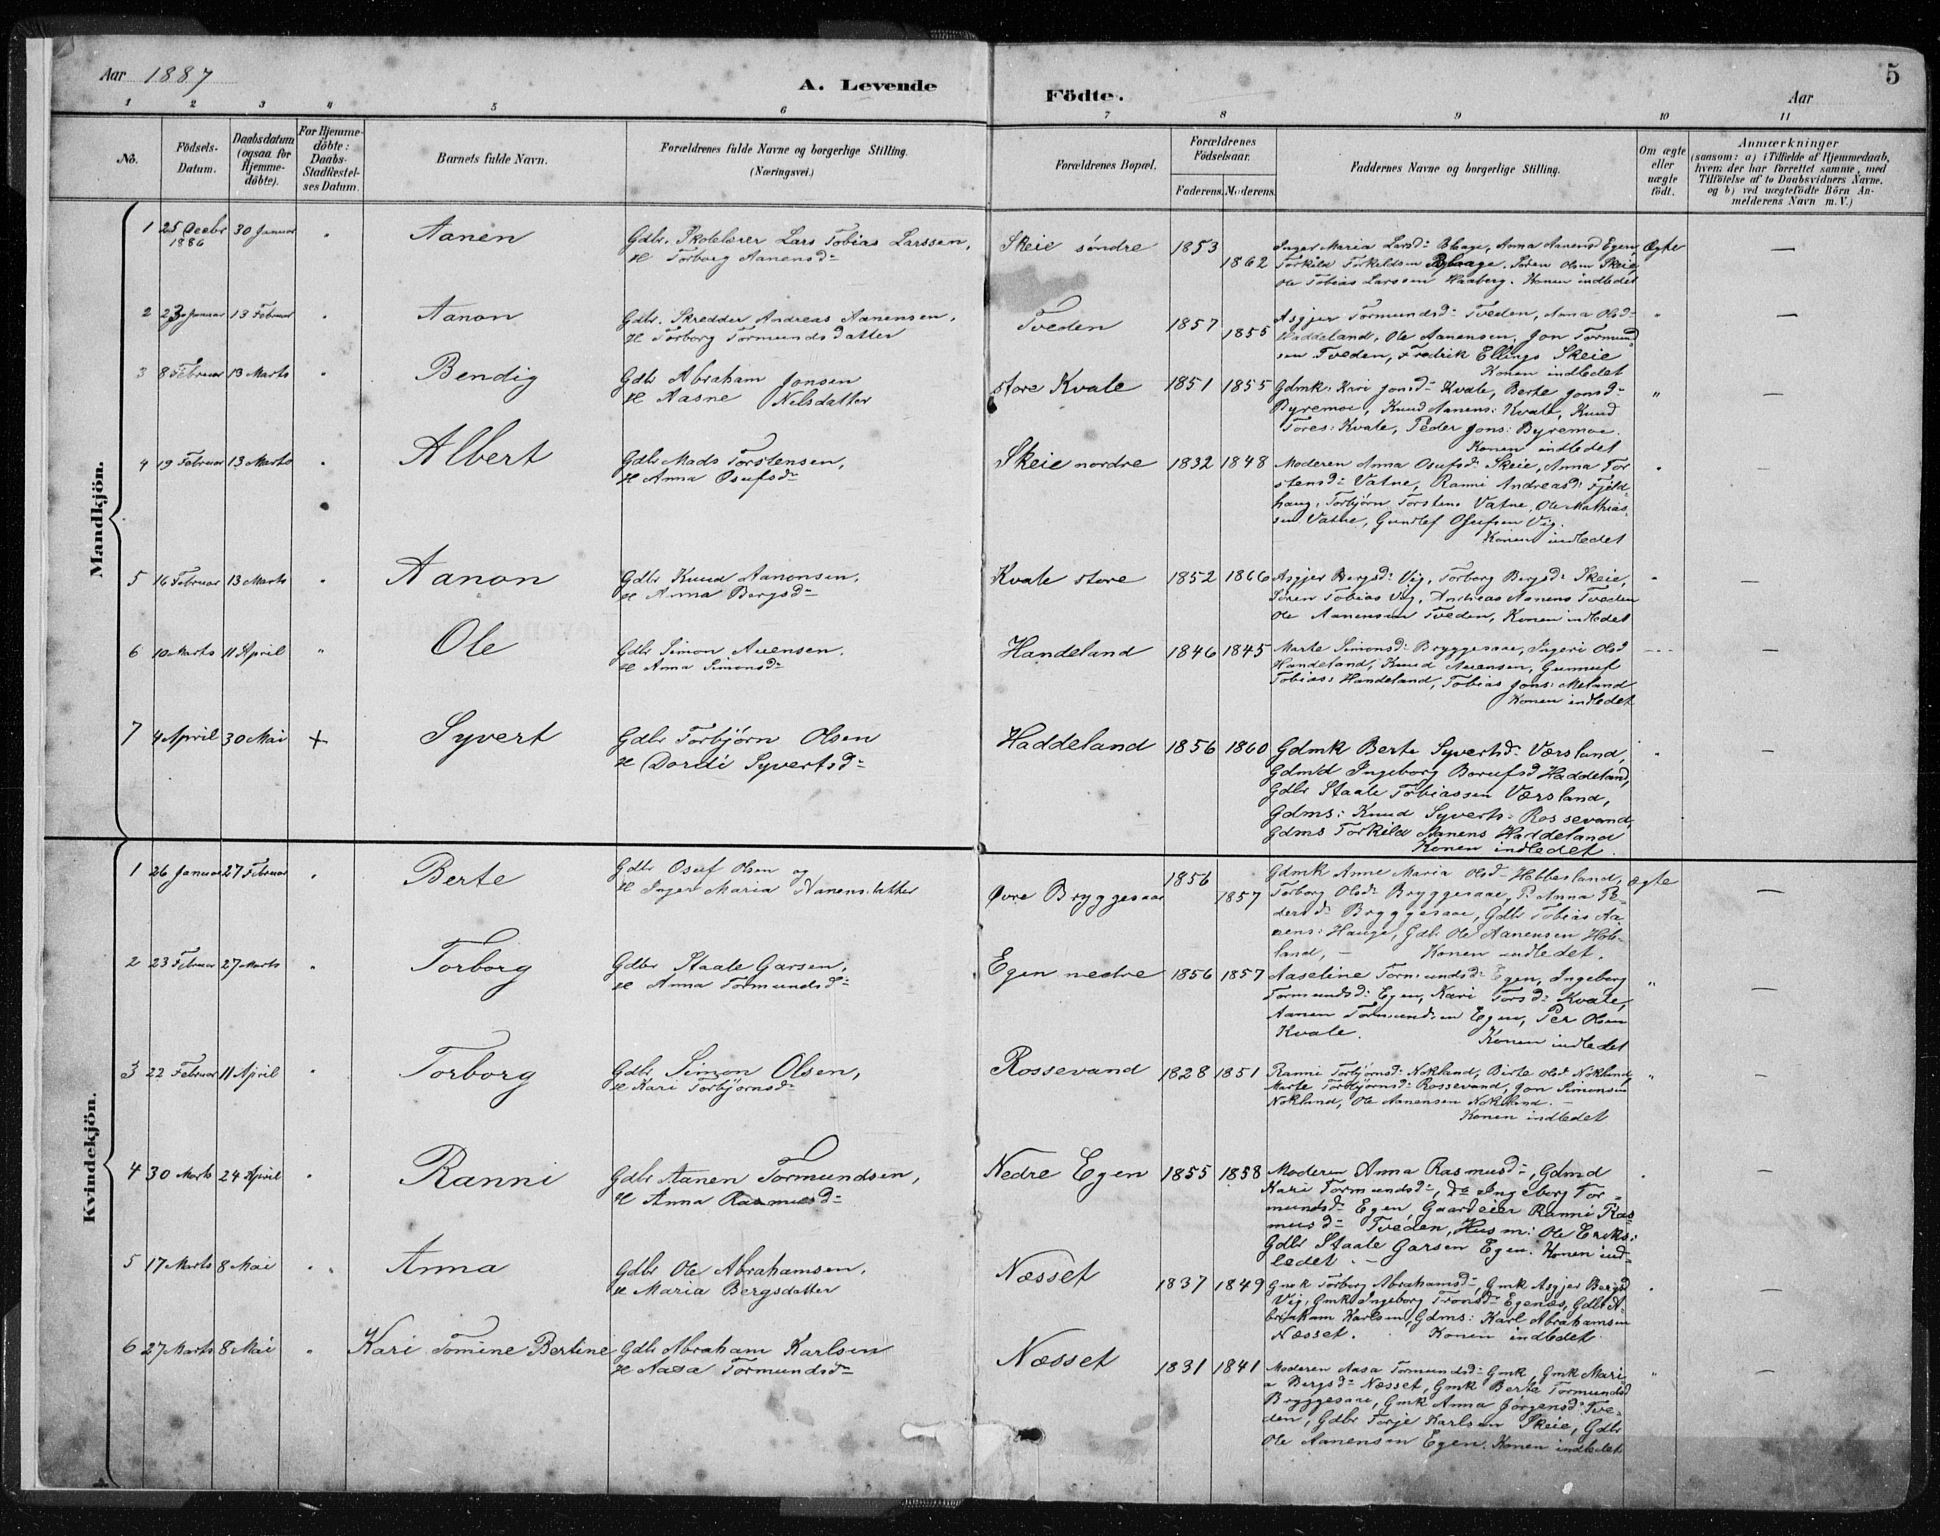 Aar 1887
A. Levende Födte.
Aar
5
1 2 3 4 5 6 7 8 9 10 11
No.
Födsels-Datum.
Daabsdatum (ogsaa for Hjemmedöbte).
For Hjemmedöbte: Daabs-Stadfæstelses Datum.
Barnets fulde Navn.
Forældrenes fulde Navne og borgerlige Stilling. (Næringsvei.)
Forældrenes Bopæl.
Forældrenes Födselsaar.
Faderens. Moderens.
Faddernes Navne og borgerlige Stilling.
Om ægte eller uægte födt.
Anmærkninger
(saasom: a) i Tilfælde af Hjemmedaab,
hvem der har forrettet samme, med
Tilföielse af to Daabsvidners Navne,
og b) ved uægtefödte Börn Anmelderens Navn m. V.)
Mandkjön.
1 25 Decbr 1886 30 Januar " Aanen
Gdbr. Skolelærer Lars Tobias Larssen,
H Torborg Aanensd=
Skeie söndre 1853 1862
Inger Maria Larsd= Blaage, Anna Aanensd Egen,
Torkild Torkildsen Blaage. Sören Olsen Skeie
Ole Tobias Larssen Haaberg. Konen indledet
Ægte —
2 23 Januar 13 Februar " Aanon
Gdbr. Skredder Andreas Aanensen,
H Torborg Tormundsdatter
Tveden 1857 1855
Asgjer Tormundsd= Tveden, Anna Olsd=
Haddeland, Ole Aanensen, Jon Tormund-
sen Tveden, Fredrik Ellings Skeie
Konen indledet
" —
3 8 Februar 13 Marts " Bendig
Gdbr Abraham Jonsen
H Aasne Nelsdatter
store Kvale 1851 1855
Gdmk: Kari Jonsd= Kvale, Berte Jonsd=
Byremoe, Knud Aanens: Kvale, Knud
Tores: Kvale, Peder Jons: Byremoe.
Konen indledet
" —
4 19 Februar 13 Marts " Albert
Gdbr Mads Torstensen,
H Anna Osufsd=
Skeie nordre 1832 1848
Moderen Anna Osufsd= Skeie, Anna Tor
stensd= Vatne, Ranni Andreasd= Fjeld-
haug, Torbjörn Torstens Vatne, Ole Mathias-
sen Vatne, Gundlef Osufsen Vig.
Konen indledet
" —
5 16 Februar 13 Marts " Aanon
Gdbr Knud Aanonsen,
H Anna Bergsd=
Kvale store 1852 1866
Asgjer Bergsd= Vig, Torborg Bergsd= Skeie,
Sören Tobias Vig, Andreas Aanens Tveden
Ole Aanensen Tveden, Konen indledet
" —
6 10 Marts 11 April " Ole
Gdbr Simon Auensen,
H Anna Simonsd=
Handeland 1846 1845
Marte Simonsd= Bryggesaae, Ingeri Olsd
Handeland, Knud Auensen, Gunnuf
Tobias: Handeland, Tobias Jons: Meland
Konen indledet
—
7 4 April 30 Mai + Syvert
Gdbr Torbjörn Olsen
H Dordi Syvertsd=
Haddeland 1856 1860
Gdmk Berte Syvertsd= Værsland,
Gdmd Ingeborg Borufsd Haddeland,
Gdbr Staale Tobiassen Værsland,
Gdms: Knud Syverts: Rossevand,
Gdms Torkild Aanens Haddeland
Konen indledet.
" —
Kvindekjön.
1 26 Januar 27 Februar " Berte
Gdbr Osuf Olsen og
H Inger Maria Aanensdatter
Övre Bryggesaae 1856 1857
Gdmk Anne Maria Olsd= Hebbesland,
Torborg Olsd= Bryggesaae, P. Anna Pe-
dersd= Bryggesaae, Gdbr Tobias Aa-
nens: Hauge, Gdbr Ole Aanensen Höb-
land, — Konen indledet.
ægte —
2 23 Februar 27 Marts " Torborg
Gdbr Staale Garsen,
H Anna Tormundsd=
Egen nedre 1856 1857
Aaseline Tormundsd= Egen, Ingeborg
Tormundsd= Egen, Kari Torsd= Kvale,
Aanen Tormundsen Egen, Per Olsen
Kvale. Konen indledet
" —
3 22 Februar 11 April " Torborg
Gdbr Simon Olsen,
H Kari Torbjörnsd=
Rossevand 1828 1851
Ranni Torbjörnsd= Nokland, Birte Olsd Nokland,
Marte Torbjörnsd= Rossevand, Jon Simonsen
Nokland, Ole Aanensen Nokland. —
Konen indledet
" —
4 30 Marts 24 April " Ranni
Gdbr Aanen Tormundsen,
H Anna Rasmusd=
Nedre Egen 1855 1858
Moderen Anna Rasmusd=, Gdmd
Kari Tormundsd=, do Ingeborg Tor-
mundsd= Egen, Gaardeier Ranni Ras-
musd= Tveden, Husm: Ole Eriks:
Gdbr Staale Garsen Egen. Konen ind-
ledet. —
" —
5 17 Marts 8 Mai " Anna
Gdbr Ole Abrahamsen,
H Maria Bergsdatter
Næsset 1837 1849
Gmk Torborg Abrahamsd=, Gmk Asgjer Bergsd
Vig, Gmk Ingeborg Tronsd= Egenæs, Gdbr A-
braham Karlsen, Gdms: Karl Abrahamsen
Næsset. Konen indledet
" —
6 27 Marts 8 Mai " Kari Tomine Bertine
Gdbr Abraham Karlsen
H Aasa Tormundsd=
Næsset 1831 1841
Moderen Aasa Tormundsd= Gmk, Gmk Mari-
a Bergsd= Næsset, Gmk Berte Tormundsd
Bryggesaae, Gmk Anna Jörgensd= Tve-
den, Gdbr Torje Karlsen Skeie, Gdbr
Ole Aanensen Egen. Konen indledet
" —